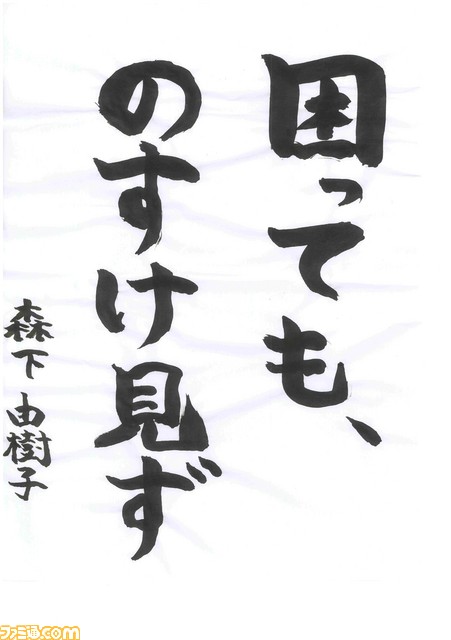 困っても、
のすけ見ず
森下由樹子
ファミ通.com